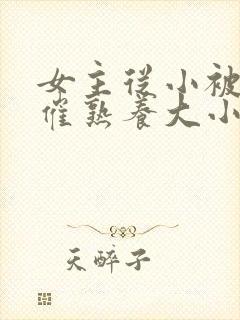 女主从小被
催熟养大小
天醉子